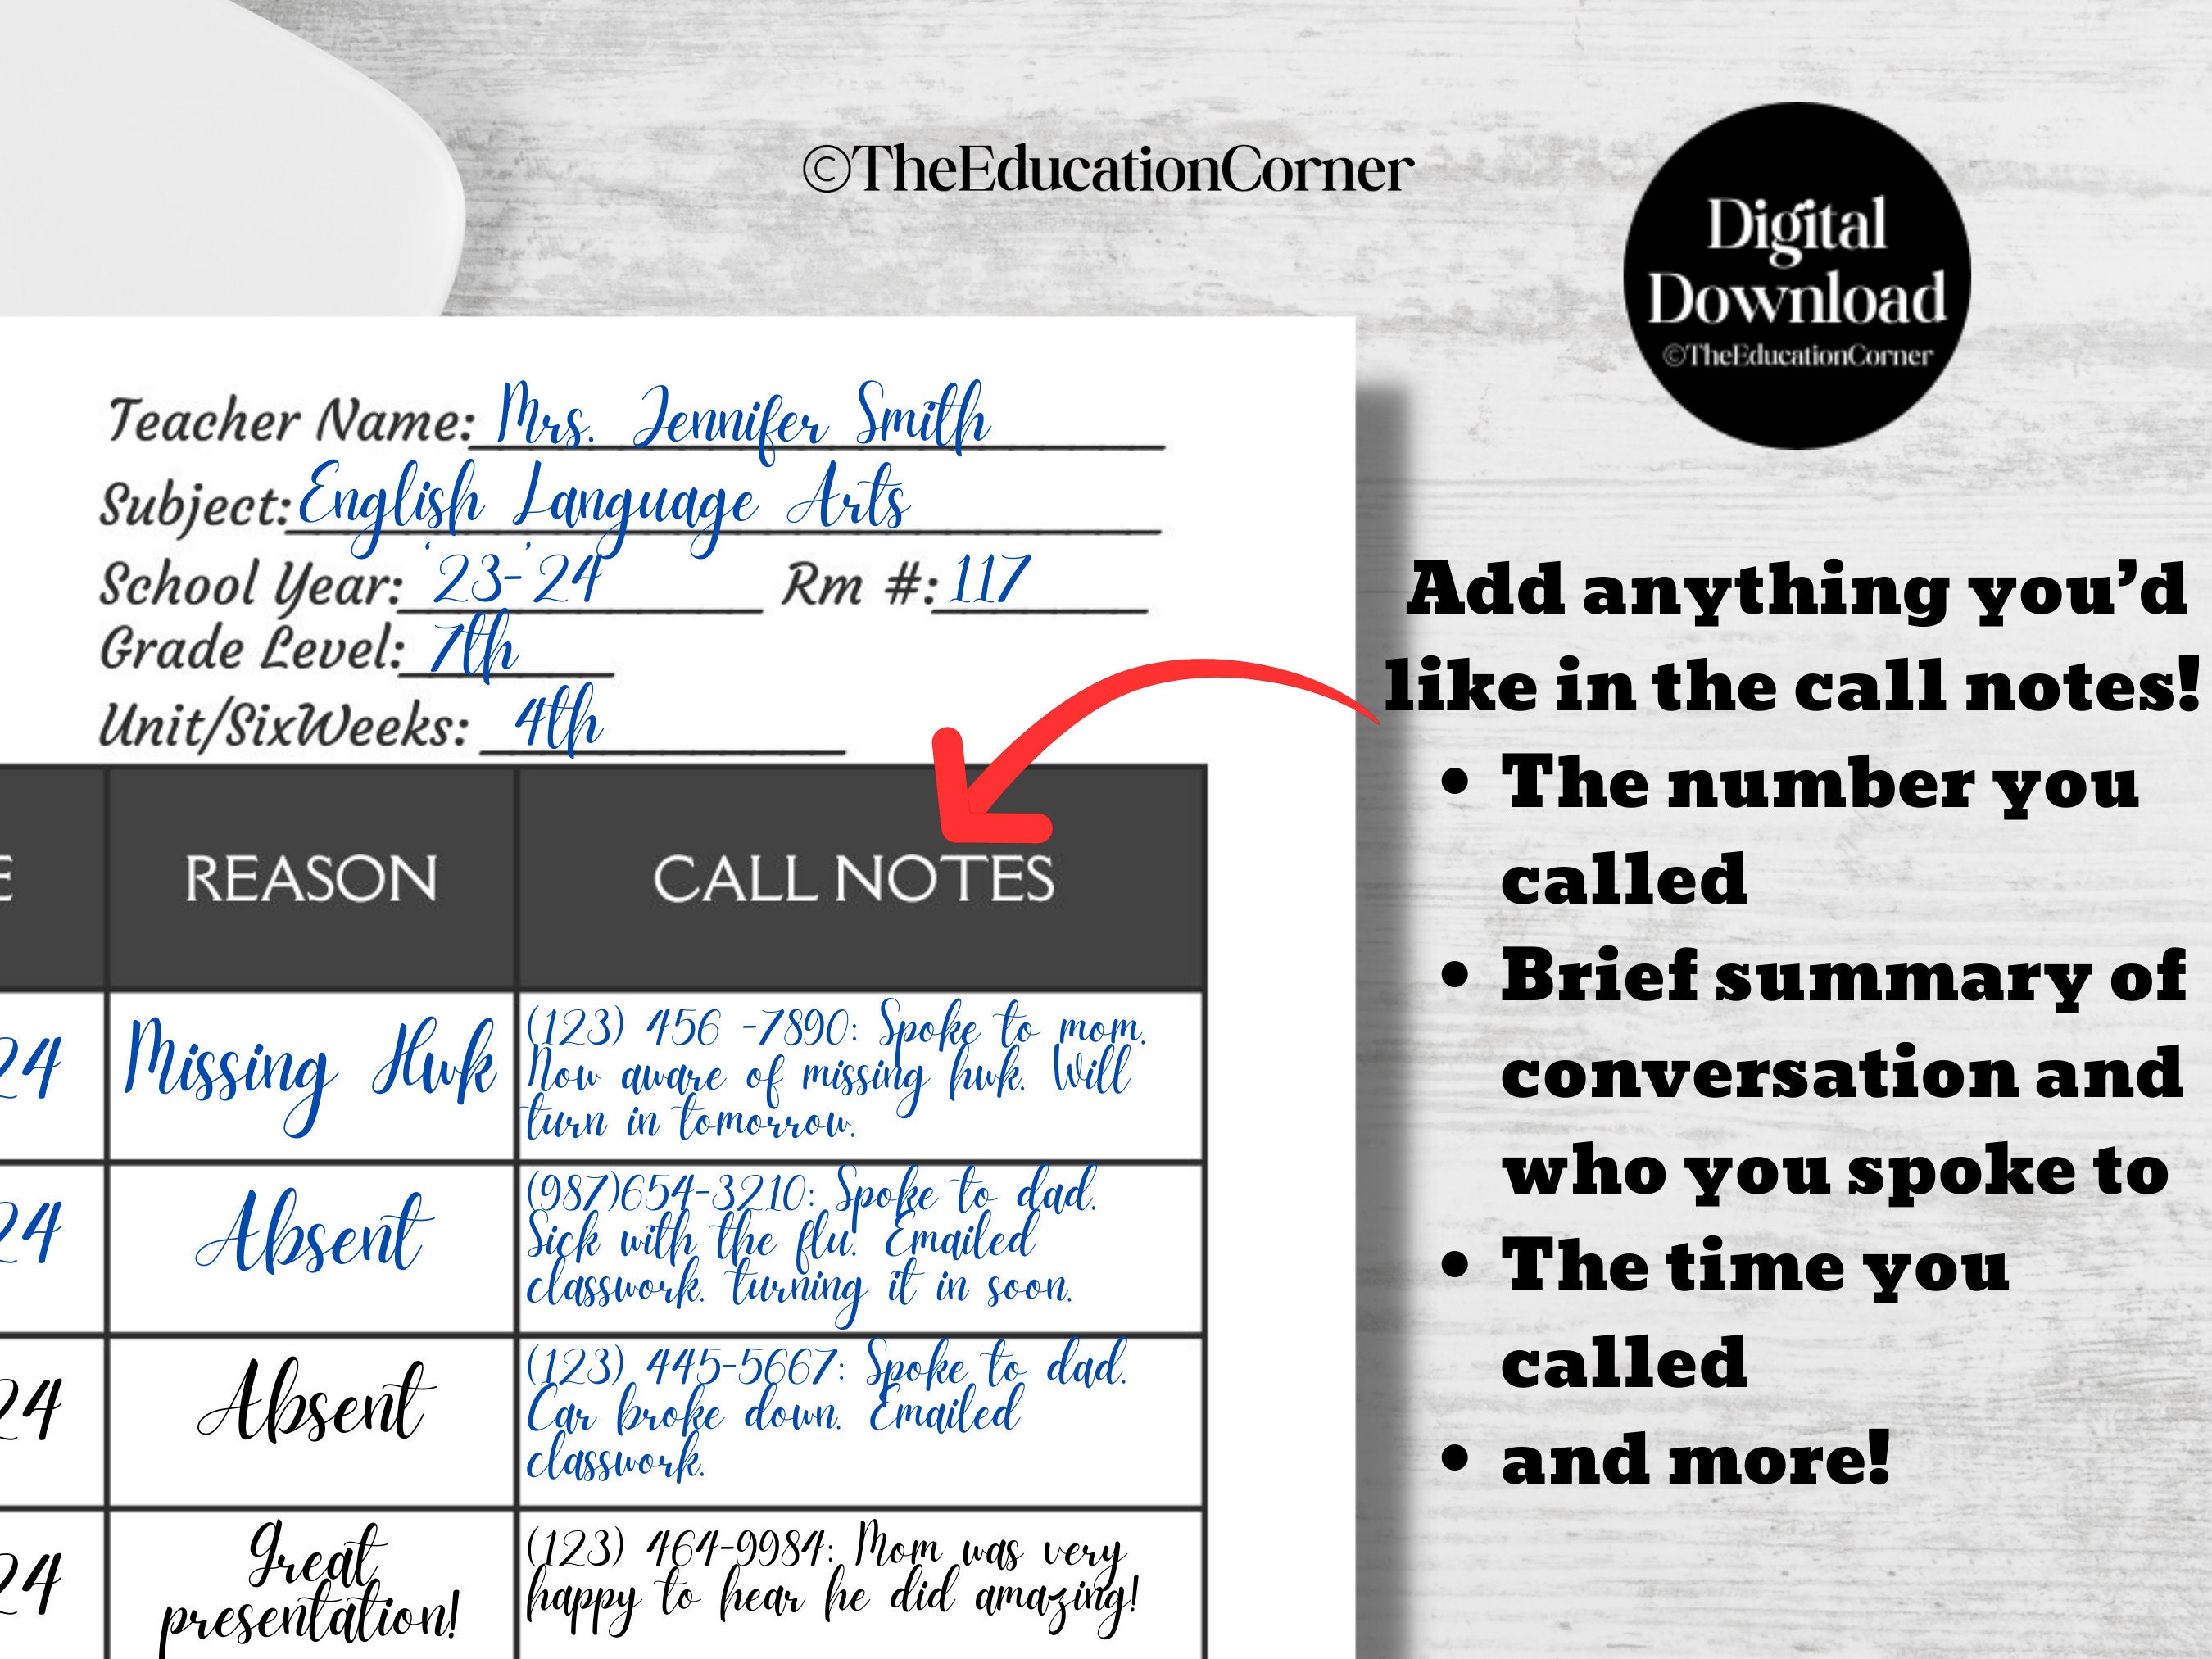 ©TheEducationCorner
Digital
Download
©TheEducationCorner
Teacher Name: Mrs. Jennifer Smith
Subject: English Language Arts
School Year: '23-'24 Rm #: 117
Grade Level: 7th
Unit/SixWeeks: 4th
Add anything you'd
like in the call notes!
• The number you
called
• Brief summary of
conversation and
who you spoke to
• The time you
called
• and more!
E REASON CALL NOTES
24 Missing Hwk (123) 456 -7890: Spoke to mom.
Now aware of missing hwk. Will
turn in tomorrow.
24 Absent (987)654-3210: Spoke to dad.
Sick with the flu. Emailed
classwork. turning it in soon.
24 Absent (123) 445-5667: Spoke to dad.
Car broke down. Emailed
classwork.
24 Great
presentation!
(123) 464-9984: Mom was very
happy to hear he did amazing!